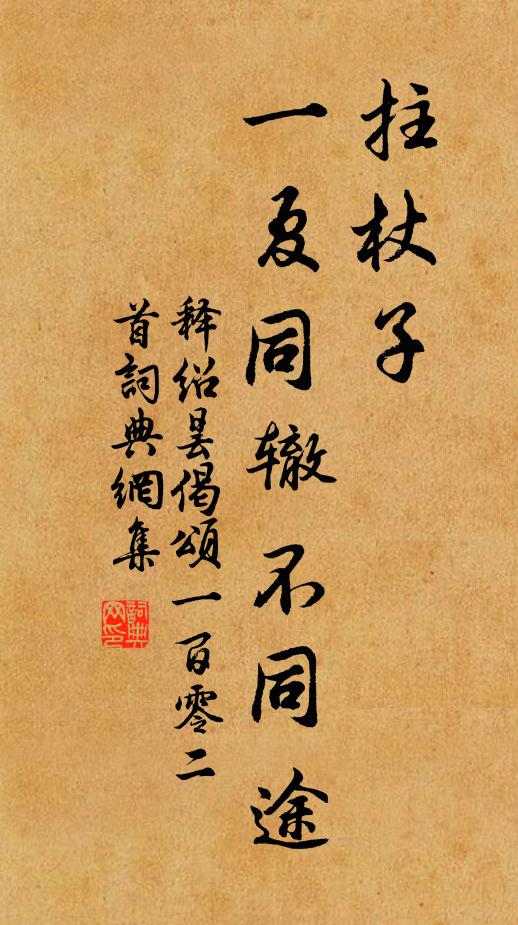 拄杖子
一夏同辙不同途
释绍昙偈頌一百零二
首詞典網集
詞典网印